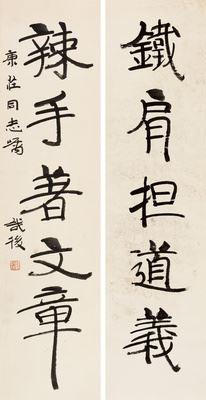 鐵肩担道義
辣手著文章
康莊同志囑